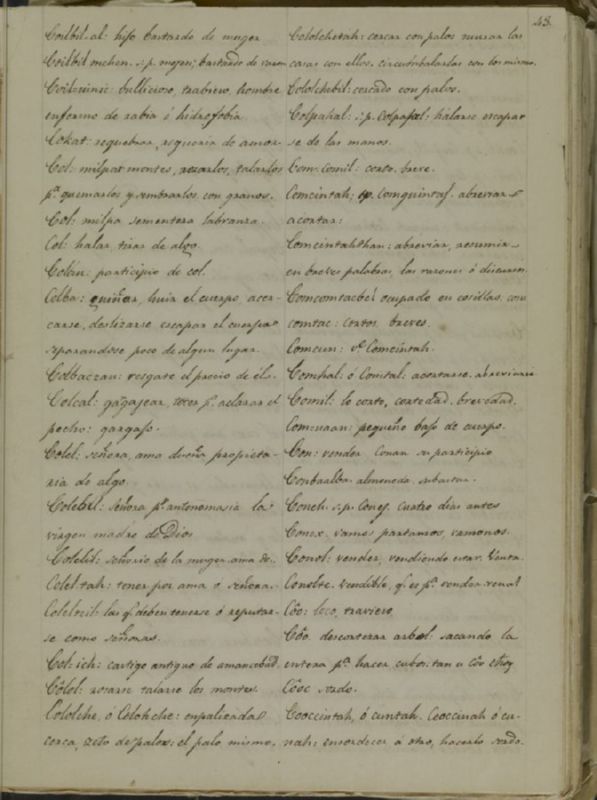 48.
Coilbil.al: hijo bastardo de muger
Coilbil mehen. s:p. mozen; bastardo de varon
Coiluinic: bullicioso, travieso, hombre
enfermo de rabia ó hidrofobia
Cokat: requebrar, requiebro de amor-
Col: milpar montes, rozarlos, talarlos
p.ª quemarlos y sembrarlos con granos.
Col: milpa sementera labranza.
Col: halar, tirar de algo
Colán: participio de col.
Colba: guiñar, huir el cuerpo, acer-
carse, deslizarse escapar el cuerpo
separandose poco de algun lugar.
Colbaczan: resgate el precio de él.
Colcal: gargajear, toser p.ª aclarar el
pecho: gargajo.
Colel: señora, ama dueña propieta-
ria de algo.
Colebil: señora p.r antonomasia la
virgen madre de Dios
Colelil: señorio de la muger ama de.
Colel.tah: tener por ama o señora.
Coleltzil: las q.e deben tenerse ó reputar-
se como señoras.
Col-ich: castigo antiguo de amancebad.
Cólol: rozarse talarse los montes.
Cololche, ó Colohche: enpalizada
cerca, zeto de palos; el palo mismo.
Cololchetah: cercar con palos murar las
casas con ellos. circumbalarlas con los mismos.
Cololchibil: cercado con palos.
Colpahal: s:p. colpajal: halarse escapar
se de las manos.
Com. Comil: corto, breve.
Comcintah; sp. Comquintaj. abreviar
acortar:
Comcintahthan: abreviar, resumir
en breves palabras, las razones ó discursos.
Comcomtacbél ocupado en cosillas, com
comtac: cortos. breves.
Comcun: v.e Comcintah.
Comhal. ó Comtal: acortarse. abreviarse
Comil: lo corto, cortedad. brevedad.
Comuaan: pequeño bajo de cuerpo.
Con: vender. Conan su participio
Conbaalba almoneda, subastar.
Coneh. s:p. Conej. cuatro dias antes
Conex. vamos partamos, vamonos.
Conol: vender, vendiendo estar. Venta.
Conolte. vendible, q.e es p.ª vender venal
Côo: loco, travieso.
Côo. descortezar arbol: sacando la
entera p.ª hacer cubos. tan u côo
Côoc sordo.
Cooccintah, ó cuntah. Cooccinah ó cu-
nah: ensordecer á otro, hacerlo sordo.